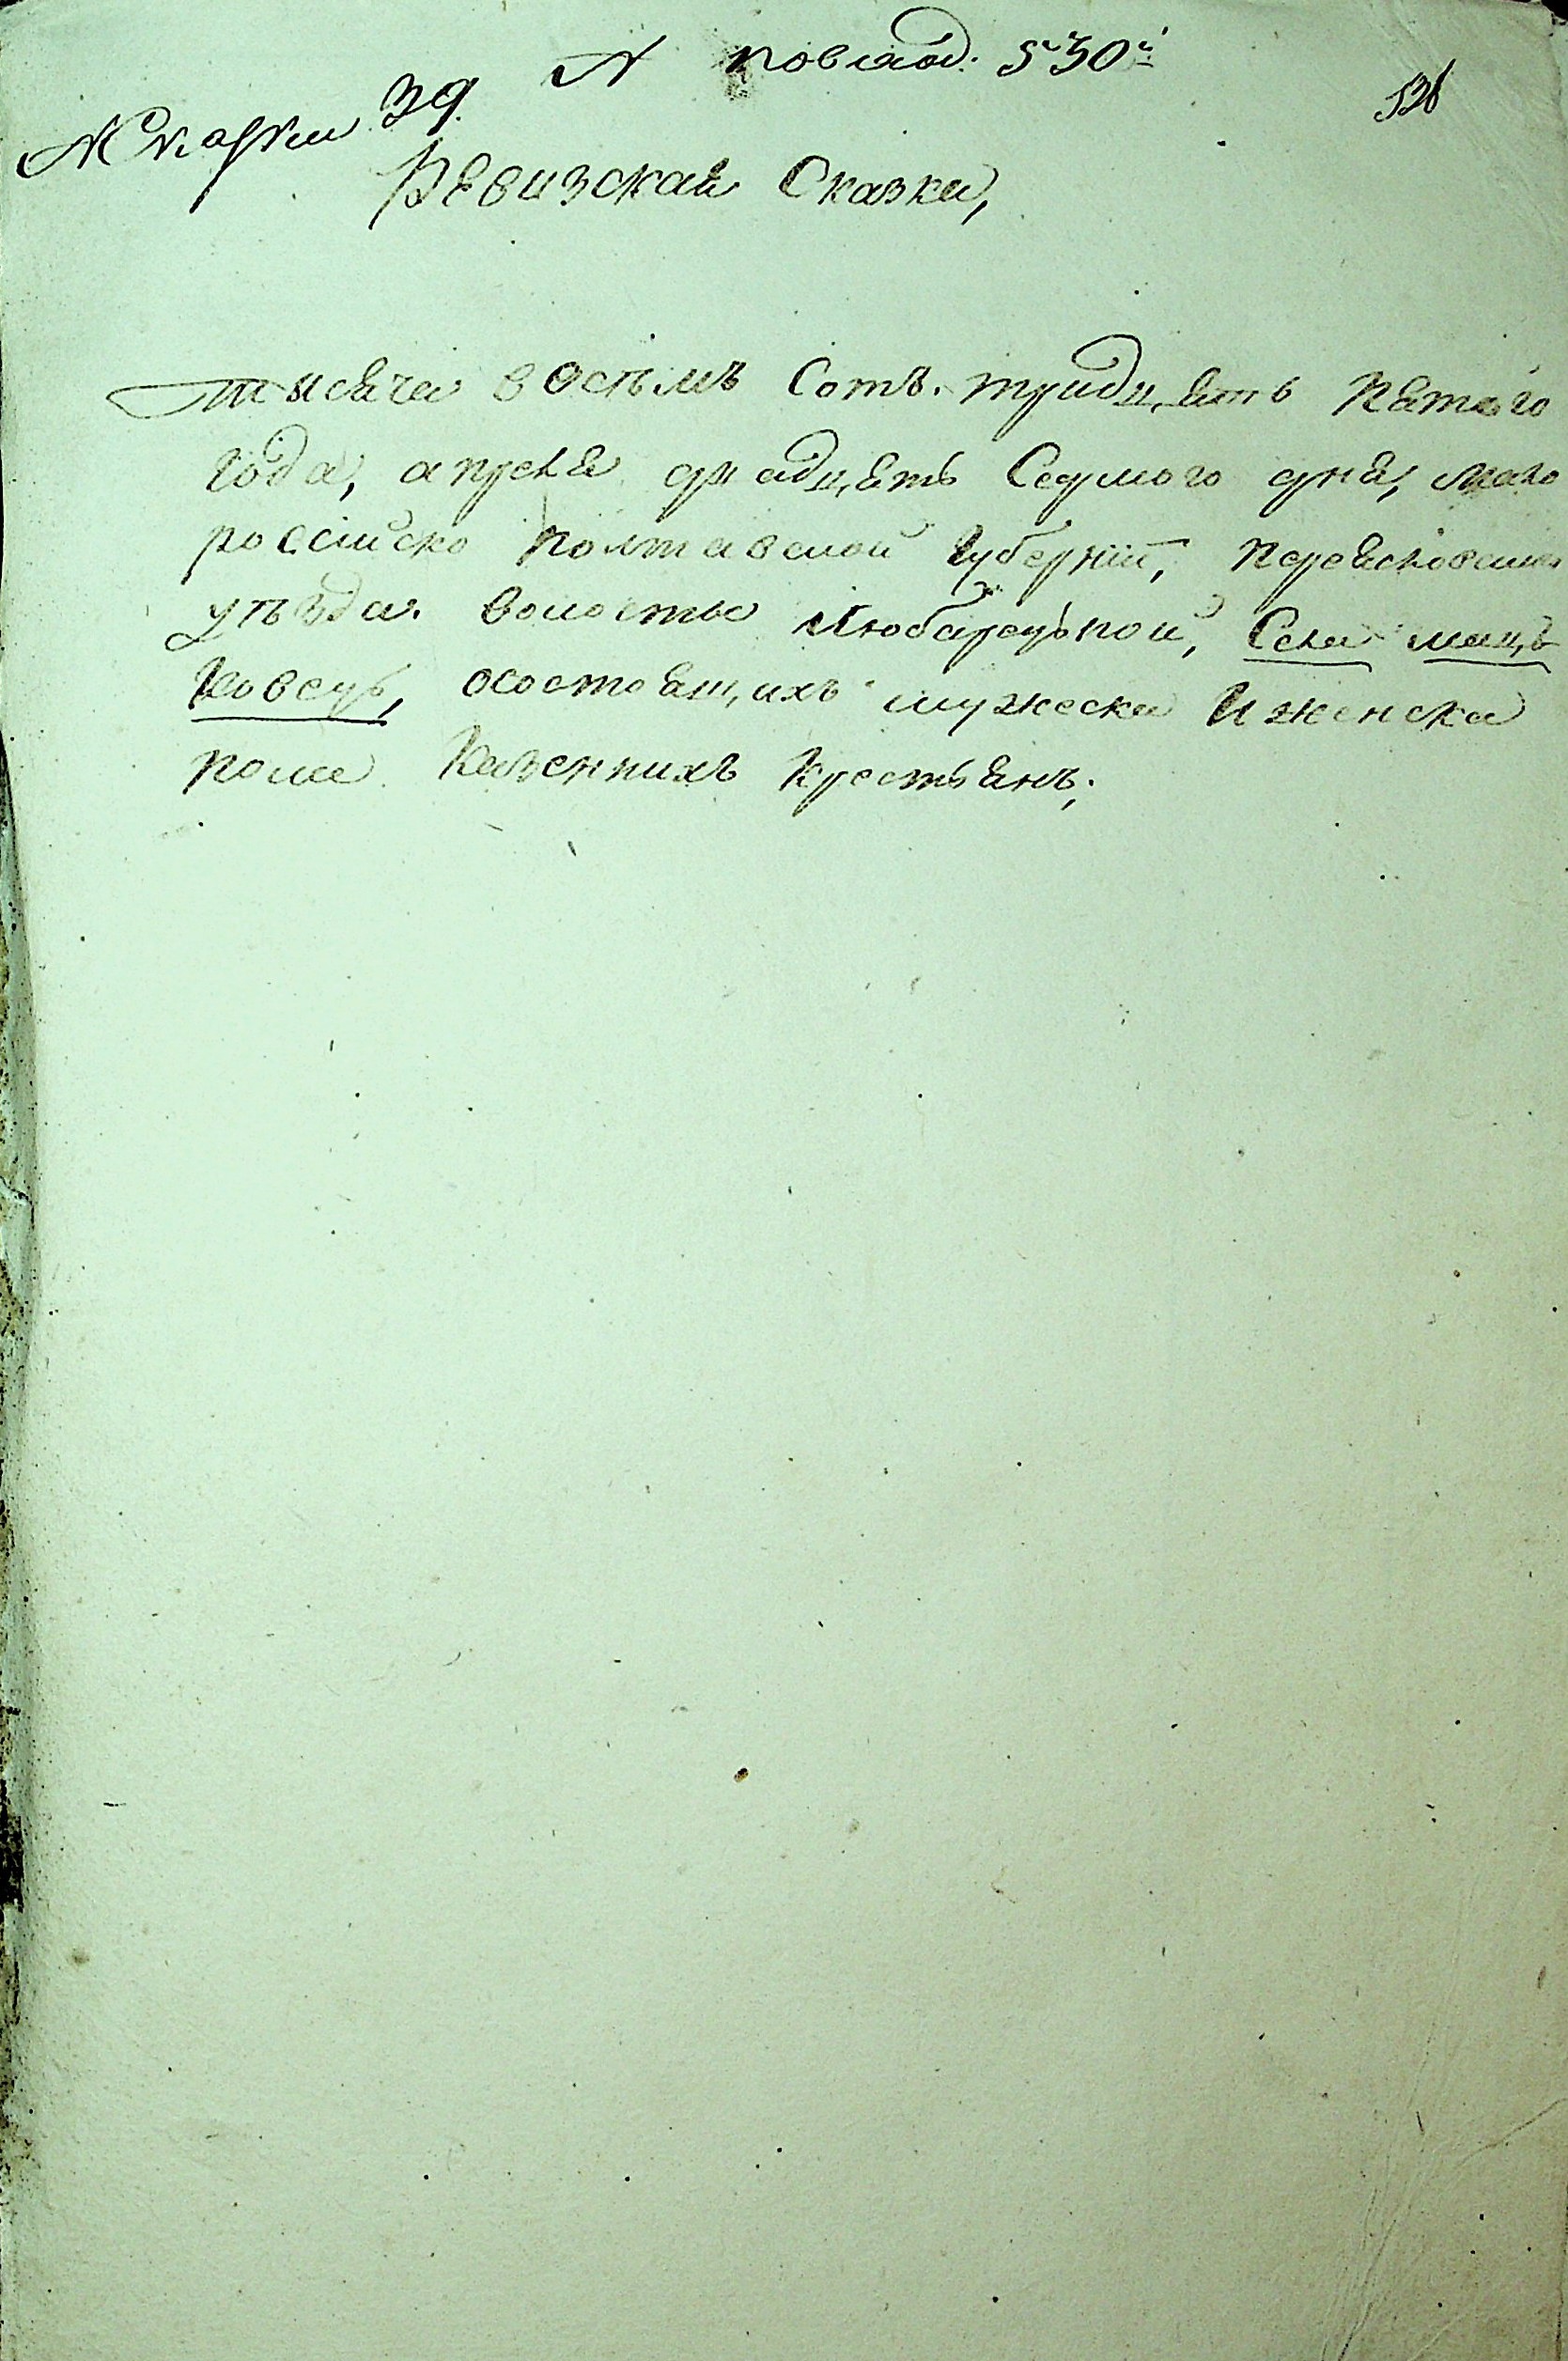 № 530й
538
№ сказки 39.
Ревизская Сказка,
тысяча восемъ Сотъ тридцять пятого
года, апреля двадцять Седмого дня, мало
россійско полтавской губерніи, переясловского
уезда волости Любарецкой, Села
о состоящихъ мужеска И женска
пола Казеннихъ крестьянъ;